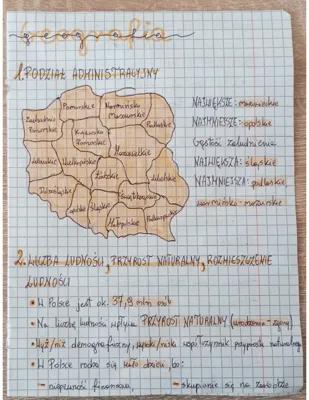 geografia
1. PODZIAŁ ADMINISTRACYJNY
Pomorskie
Warmińsko
Mazurskie
Zachodnio
Pomorskie
Podlaskie
Kujawsko
Pomorskie
Mazowieckie
Lubuskie
Wielkopolskie
Łódzkie
Lubelskie
Dolnośląskie
Opolskie
Śląskie
Świętokrzyskie
Małopolskie
Podkarpackie
NAJWIĘKSZE: mazowieckie
NAJMNIEJSZE: opolskie
Gęstość zaludnienia
NAJWIĘKSZA: śląskie
NAJMNIEJSZA: podlaskie,
warmińsko-mazurskie
2. LICZBA LUDNOŚCI, PRZYROST NATURALNY, ROZMIESZCZENIE
LUDNOŚCI
• W Polsce jest ok. 37,9 mln osób
• Na liczbę ludności wpływa PRZYROST NATURALNY (urodzenia - zgony)
• Wyż/niż demograficzny, wysoki/niski współczynnik przyrostu naturalnego
• W Polsce rodzi się mało dzieci, bo:
- niepewność finansowa, - skupianie się na zawodzie